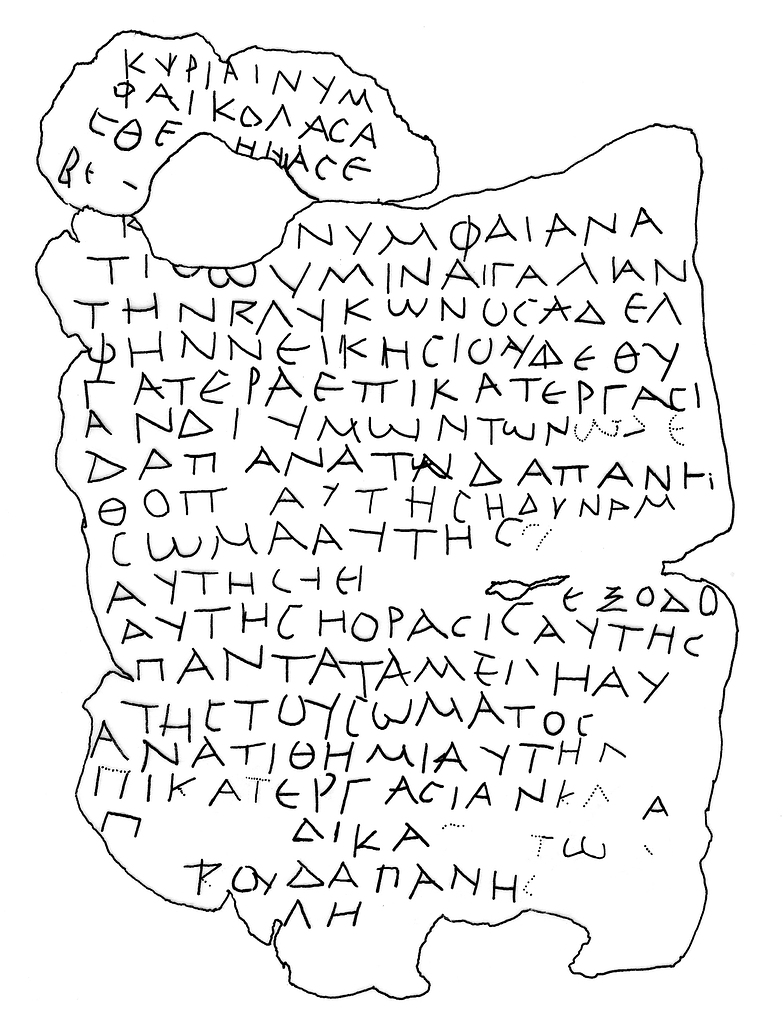 ΚΥΡΙΑΙΝΥΜ
ΦΑΙΚΟΛΑСΑ
СΘΕ
ΒΕ ΗΜΑСΕ
Κ ΝΥΜΦΑΙΑΝΑ
ΤΙ ΩΥΜΙΝΑΙΓΑΛΙΑΝ
ΤΗΝΒΛΥΚΩΝΟСΑΔΕΛ
ΦΗΝΝΕΙΚΗСΙΟΥΔΕΘΥ
ΓΑΤΕΡΑΕΠΙΚΑΤΕΡΓΑСΙ
ΑΝΔΙΥΜΩΝΤΩΝΩΔΕ
ΔΑΠΑΝΑΤΩΔΑΠΑΝΗ
ΘΟΠ ΑΥΤΗСΗΔΥΝΑΜ
СΩΜΑΑΥΤΗС
ΑΥΤΗСΤΗ ΕΞΟΔΟ
ΑΥΤΗСΗΟΡΑСΙСΑΥΤΗС
ΠΑΝΤΑΤΑΜΕΛΗΑΥ
ΤΗСΤΟΥСΩΜΑΤΟС
ΑΝΑΤΙΘΗΜΙΑΥΤΗΝ
ΠΙΚΑΤΕΡΓΑСΙΑΝΚΑ Α
Π ΔΙΚΑ ΤΩ
ΡΟΥΔΑΠΑΝΗ
ΛΗ